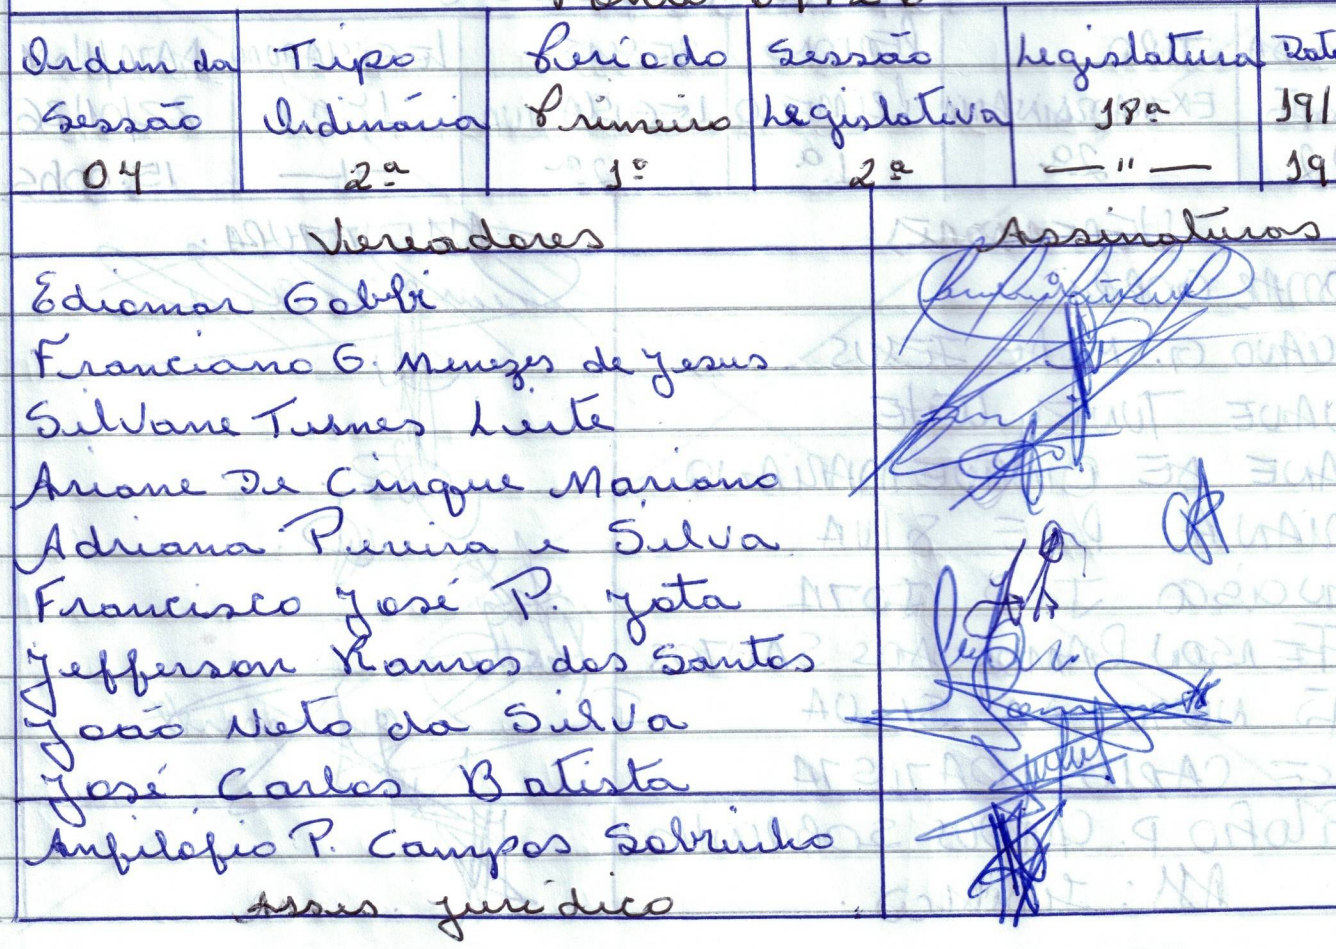 Ordem da Tipo Período Sessão Legislatura Dat
Sessão Ordinária Primeiro Legislativa 18ª 19/
04 2ª 1º 2ª — " — 19
Vereadores Assinaturas
Ediomar Gabbi
Franciano G. Menezes de Jesus
Silvane Tusnes Leite
Ariane De Cinque Mariano
Adriana Pereira e Silva
Francisco José P. Jota
Jefferson Ramos dos Santos
João Neto da Silva
José Carlos Batista
Anfilófio P. Campos Sobrinho
Asses jurídico